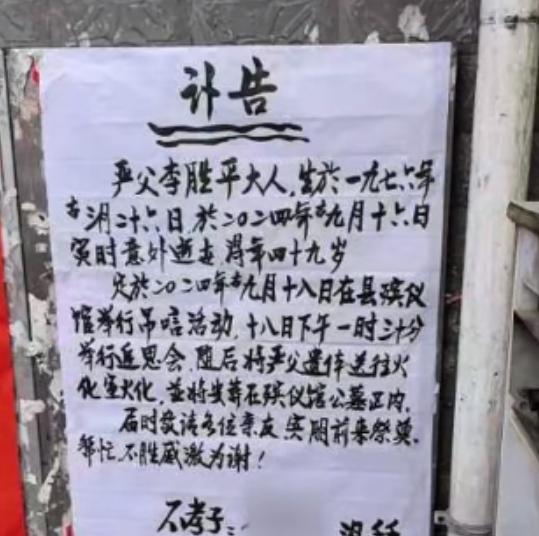 讣告
严父李胜平大人,生於一九七六年
古三月二十六日,於二〇二四年古九月十六日
寅时意外逝去,得年四十九岁
定於二〇二四年古九月十八日在县殡仪
馆举行吊唁活动,十八日下午一时三十分
举行追思会,随后将严父遗体送往火
化室火化,並将安葬在殡仪馆公墓区内。
届时敬请各位亲友 前来祭奠、
帮忙,不胜感激为谢!
不孝子: